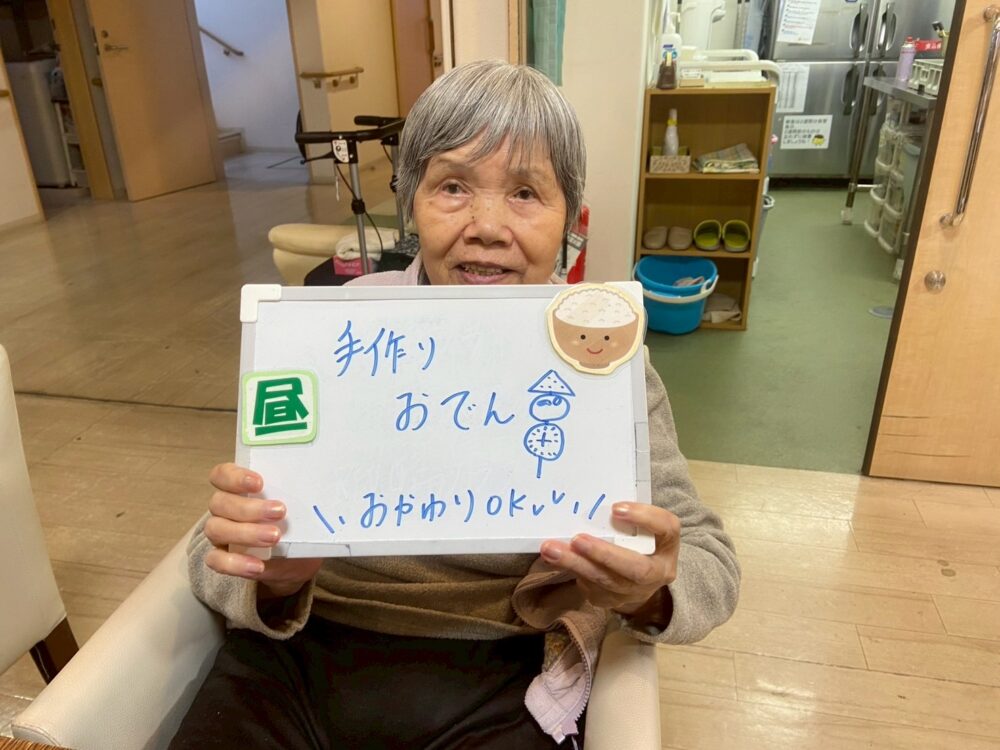 手作り
おでん
昼
おかわりOK